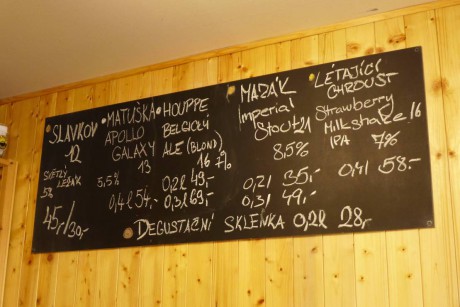 SLAVKOV
12
SVĚTLÝ
LEŽÁK
5%
45,-/30,-
MATUŠKA
APOLLO
GALAXY
13
5,5%
0,4l 54,-
HOUPPE
BELGICKÝ
ALE (BLOND)
16 7%
0,2l 49,-
0,3l 69,-
MAZÁK
Imperial
Stout 21
8,5%
0,2l 35,-
0,3l 49,-
LÉTAJÍCÍ
CHROUST
Strawberry
Milkshake 16
IPA 7%
0,4l 58,-
DEGUSTAČNÍ SKLENKA 0,2l 28,-